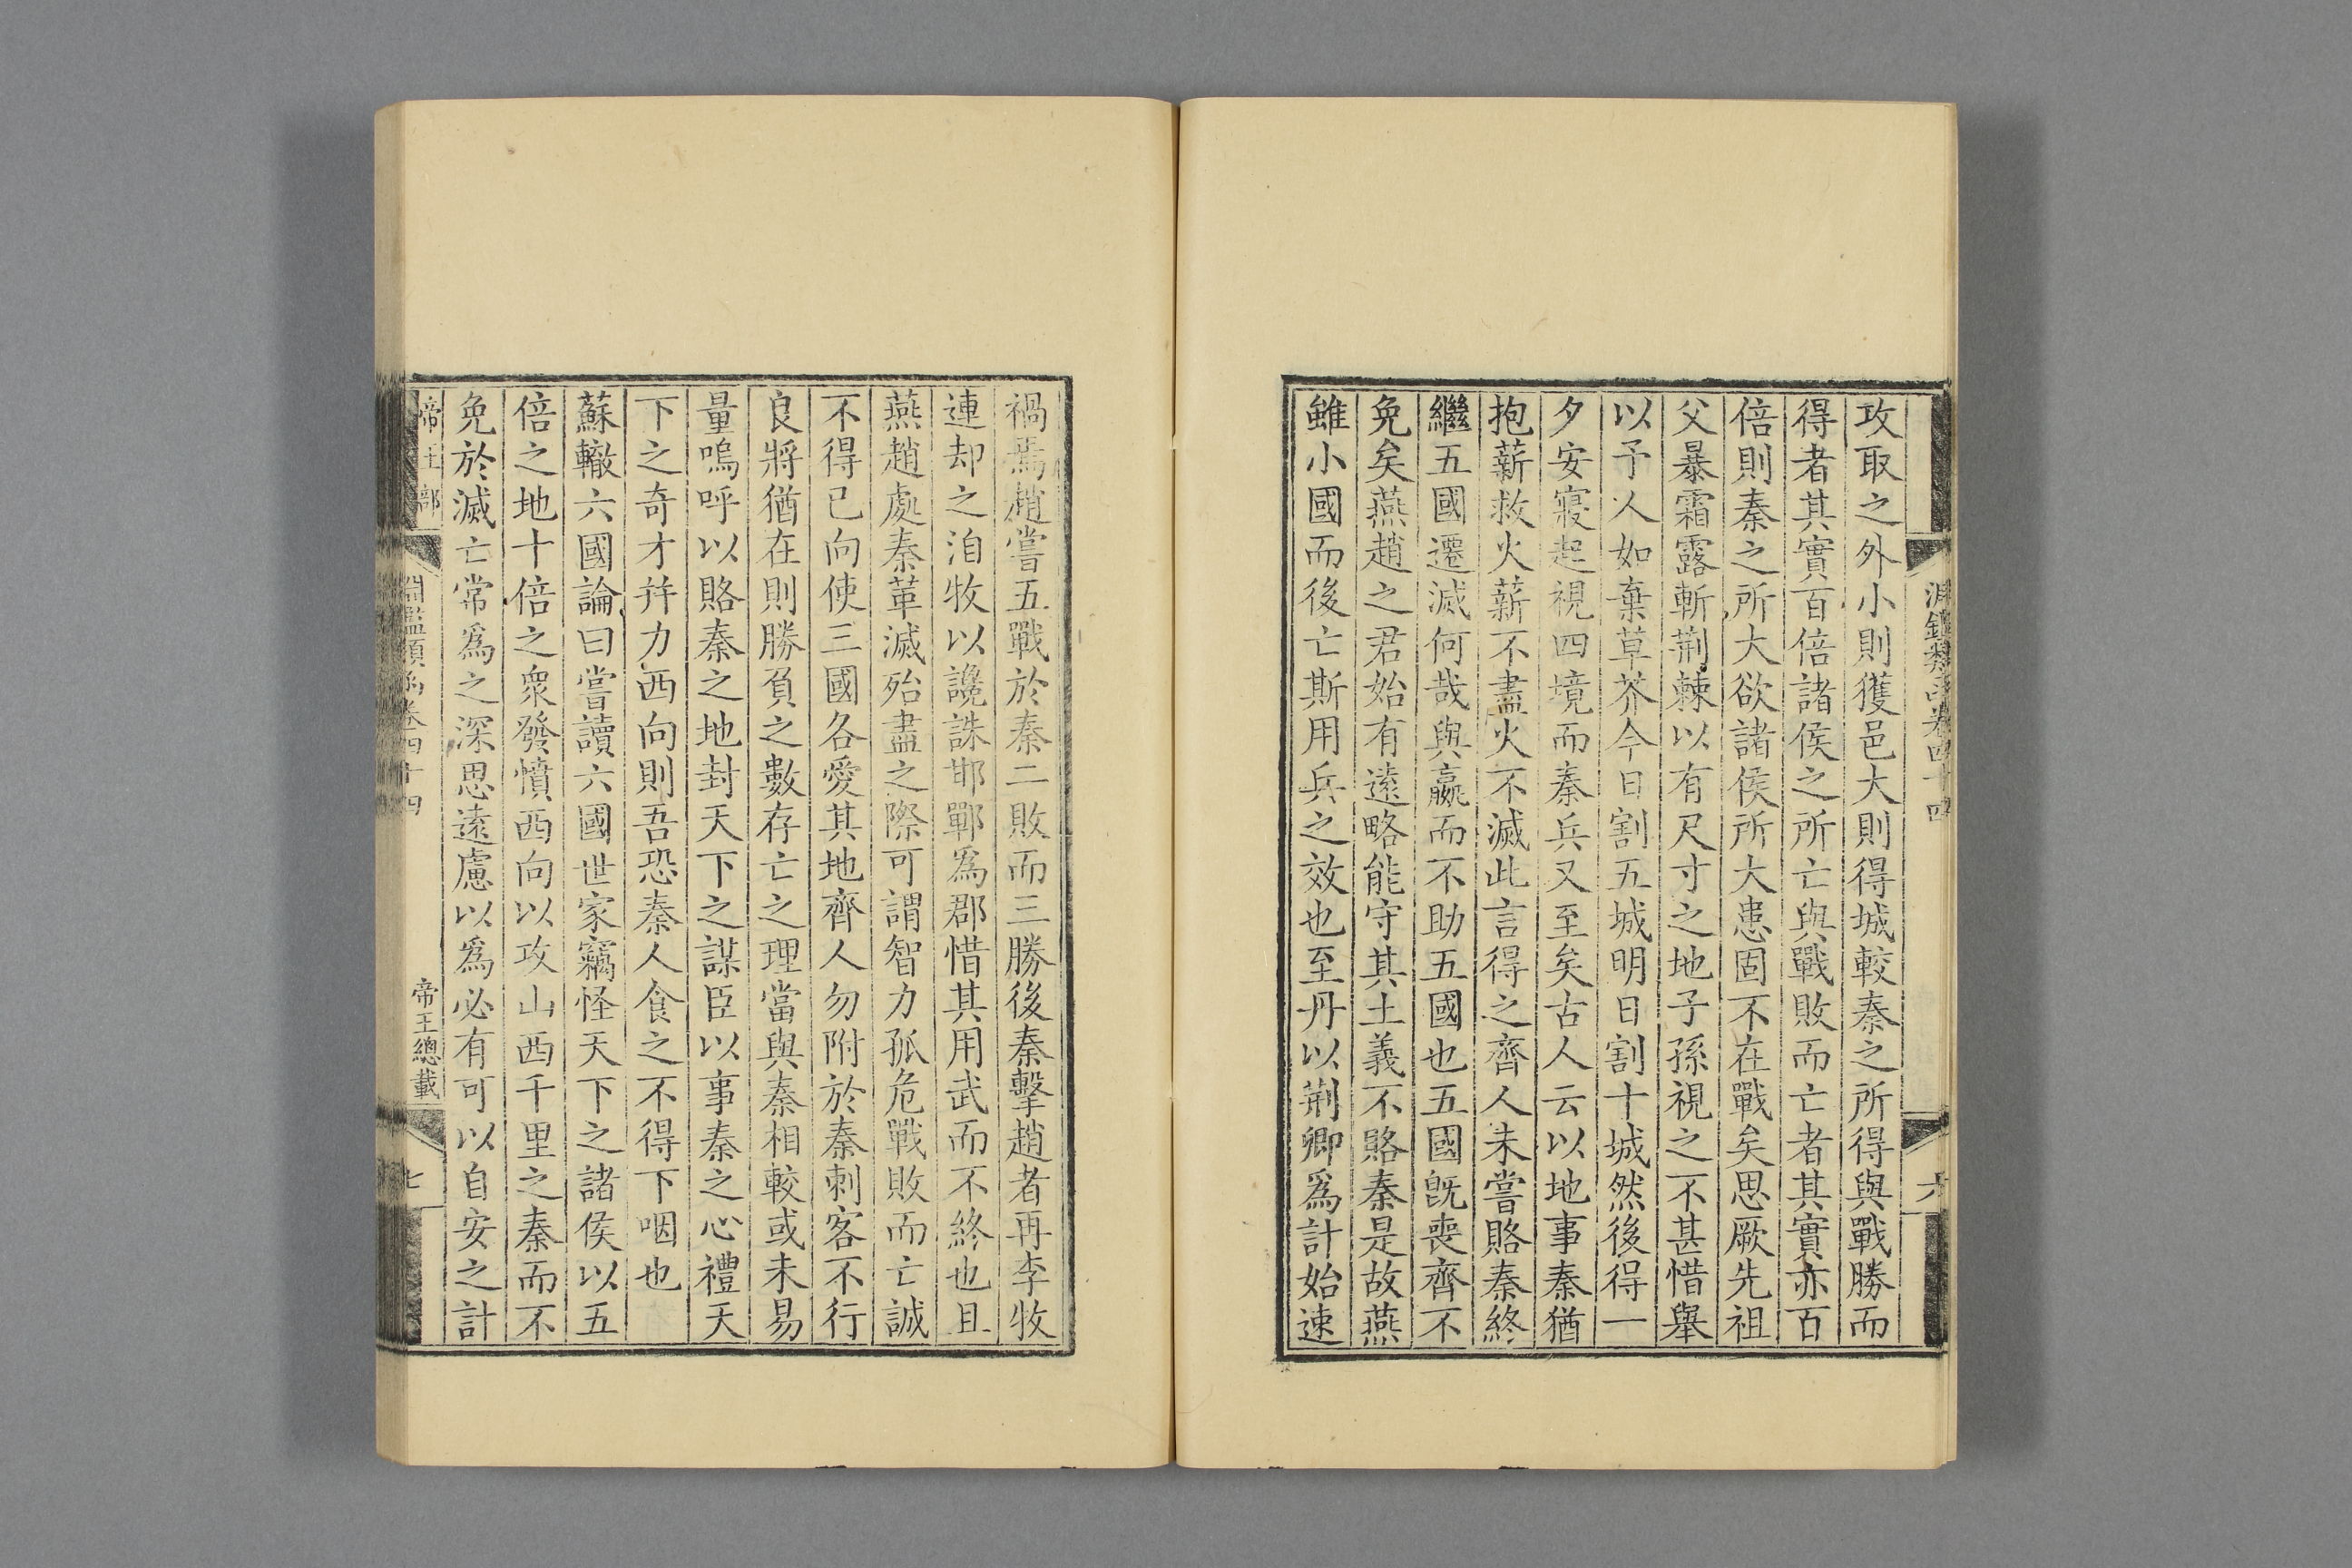 攻取之外小則獲邑大則得城較秦之所得與戰勝而
得者其實百倍諸侯之所亡與戰敗而亡者其實亦百
倍則秦之所大欲諸侯所大患固不在戰矣思厥先祖
父暴霜露斬荆棘以有尺寸之地子孫視之不甚惜舉
以予人如棄草芥今日割五城明日割十城然後得一
夕安寢起視四境而秦兵又至矣古人云以地事秦猶
抱薪救火薪不盡火不滅此言得之齊人未嘗賂秦終
繼五國遷滅何哉與嬴而不助五國也五國旣喪齊不
免矣燕趙之君始有遠略能守其土義不賂秦是故燕
雖小國而後亡斯用兵之效也至丹以荆卿爲計始速
禍焉趙嘗五戰於秦二敗而三勝後秦擊趙者再李牧
連却之洎牧以讒誅邯鄲爲郡惜其用武而不終也且
燕趙處秦革滅殆盡之際可謂智力孤危戰敗而亡誠
不得已向使三國各愛其地齊人勿附於秦刺客不行
良將猶在則勝負之數存亡之理當與秦相較或未易
量嗚呼以賂秦之地封天下之謀臣以事秦之心禮天
下之奇才并力西向則吾恐秦人食之不得下咽也
蘇轍六國論曰嘗讀六國世家竊怪天下之諸侯以五
倍之地十倍之衆發憤西向以攻山西千里之秦而不
免於滅亡常爲之深思遠慮以爲必有可以自安之計
帝王部
淵鑑類函卷四十四
帝王總載
七
淵鑑類函卷四十四
六